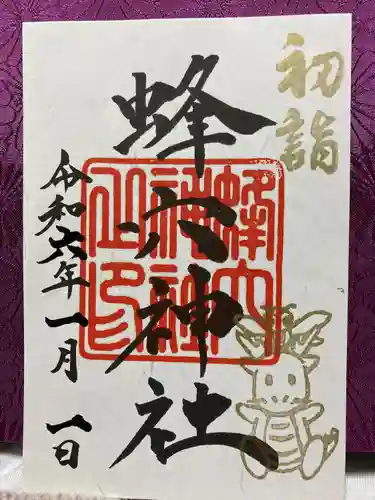 初詣
蜂穴神社
蜂穴神社之印
令和六年一月一日